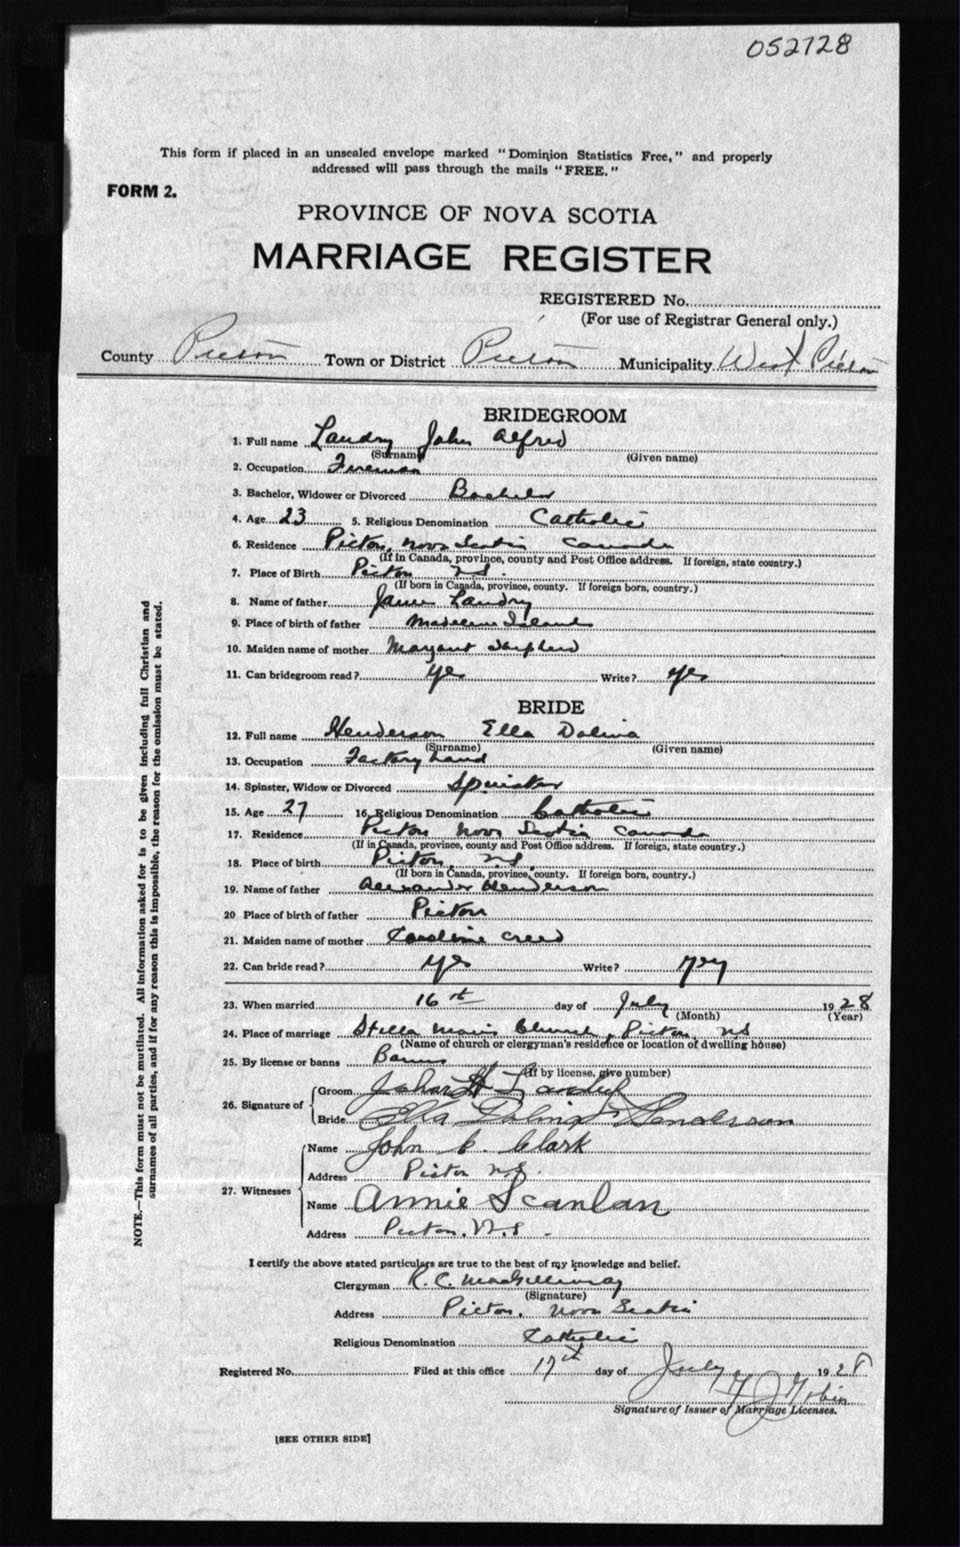 052728
This form if placed in an unsealed envelope marked "Dominion Statistics Free," and properly
addressed will pass through the mails "FREE."
FORM 2.
PROVINCE OF NOVA SCOTIA
MARRIAGE REGISTER
REGISTERED No.
(For use of Registrar General only.)
County Pictou Town or District Pictou Municipality West Pictou
BRIDEGROOM
1. Full name Landry John Alfred
(Surname) (Given name)
2. Occupation Fireman
3. Bachelor, Widower or Divorced Bachelor
4. Age 23 5. Religious Denomination Catholic
6. Residence Pictou, Nova Scotia Canada
(If in Canada, province, county and Post Office address. If foreign, state country.)
7. Place of Birth Pictou N.S.
(If born in Canada, province, county. If foreign born, country.)
8. Name of father James Landry
9. Place of birth of father Madelene Islands
10. Maiden name of mother Margaret Shepherd
11. Can bridegroom read? Yes Write? Yes
BRIDE
12. Full name Henderson Ella Dolina
(Surname) (Given name)
13. Occupation Factory hand
14. Spinster, Widow or Divorced Spinster
15. Age 27 16. Religious Denomination Catholic
17. Residence Pictou Nova Scotia Canada
(If in Canada, province, county and Post Office address. If foreign, state country.)
18. Place of birth Pictou, N.S.
(If born in Canada, province, county. If foreign born, country.)
19. Name of father Alexander Henderson
20 Place of birth of father Pictou
21. Maiden name of mother Caroline Creed
22. Can bride read? Yes Write?
23. When married 16th day of July 1928
(Month) (Year)
24. Place of marriage Stella Maris Church, Pictou, N.S
(Name of church or clergyman's residence or location of dwelling house)
25. By license or banns Banns
(If by license, give number)
26. Signature of Groom John A Landry
Bride Ella Dolina Henderson
27. Witnesses
Name John C. Clark
Address Pictou N.S.
Name Annie Scanlan
Address Pictou, N.S.
I certify the above stated particulars are true to the best of my knowledge and belief.
Clergyman R. C. MacGillivray
(Signature)
Address Pictou, Nova Scotia
Religious Denomination Catholic
Registered No. Filed at this office 17th day of July 1928
Signature of Issuer of Marriage Licenses.
[SEE OTHER SIDE]
NOTE.—This form must not be mutilated. All information asked for is to be given including full Christian and
surnames of all parties, and if for any reason this is impossible, the reason for the omission must be stated.